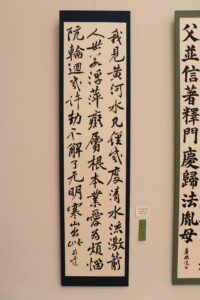 父並信著釋門慶歸法胤母
我見黃河水凡經幾度清水流激箭
人世若浮萍癡屬根本業愛為煩惱
阬輪迴幾許劫不解了无明寒山